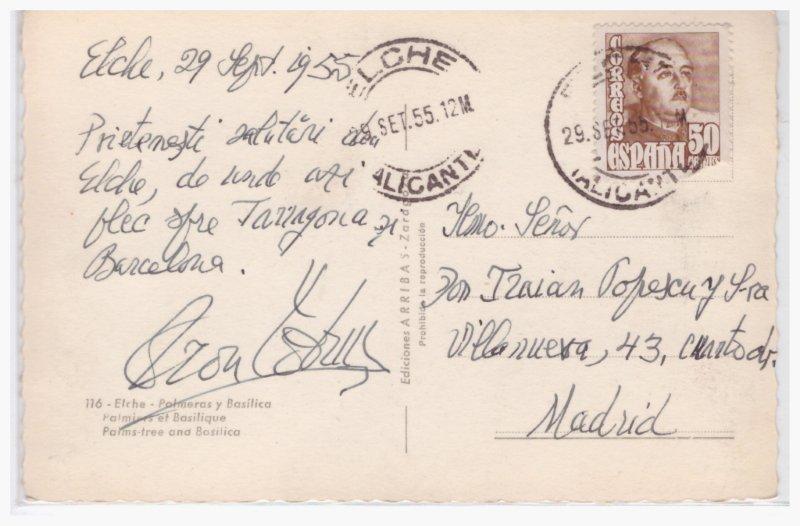 Elche, 29 Sept. 1955
Prietenești salutări din
Elche, de unde azi
plec spre Tarragona și
Barcelona.
116 - Elche - Palmeras y Basílica
Palmiers et Basilique
Palms-tree and Basilica
Ediciones ARRIBAS - Zarag
Prohibida la reproducción
ELCHE
29.SET.55.12M.
(ALICANTE)
CORREOS
50
ESPAÑA
29.SET.55.
(ALICANTE)
Ilmo. Señor
Don Traian Popescu y S-ra
Villanueva, 43, cuarto dr.
Madrid